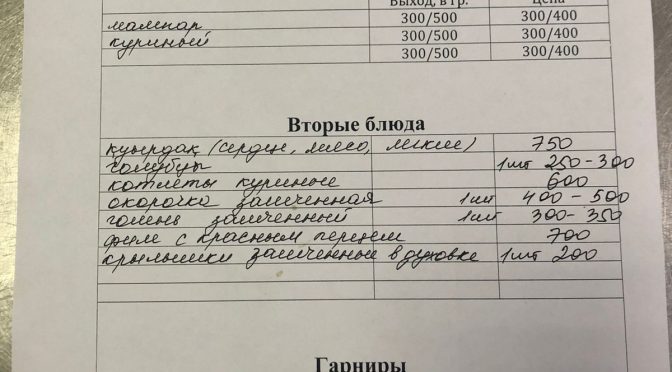 Выход, в гр. Цена
мампар 300/500 300/400
куриный 300/500 300/400
300/500 300/400
Вторые блюда
қуырдақ (сердце, мясо, легкие) 750
голубцы 1 шт 250-300
котлеты куриные 600
окорочка запеченная 1 шт 400-500
голень запеченный 1 шт 300-350
филе с красным перцем 700
крылышки запеченные в духовке 1 шт 200
Гарниры